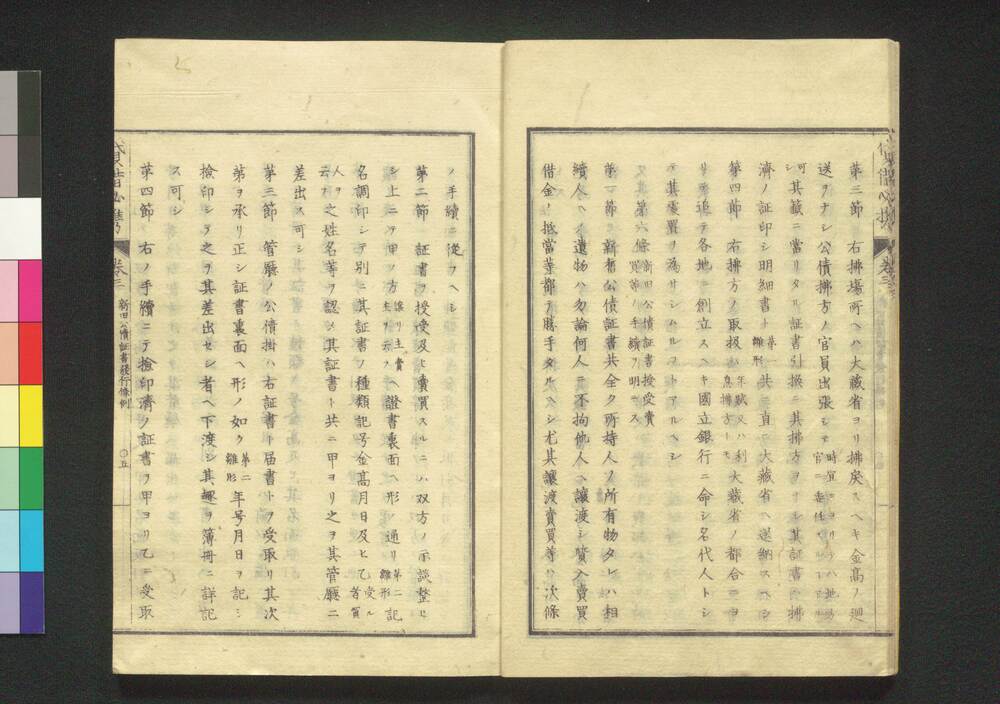 第三節 右拂場所ヘハ大藏省ヨリ拂戾スヘキ金高ノ廻
送ヲナシ公債拂方ノ官員出張シテ時宜ニヨリテハ地方官ニ委任
可其籤ニ當リタル証書引換ニ其拂方ヲナシ其証書ヘ拂
濟ノ証印シ明細書ト第一雛形共ニ直ニ大藏省ヘ送納スヘシ
第四節 右拂方ノ取扱ハ年賦又ハ利息拂方トモ大藏省ノ都合ニヨ
リテ追テ各地ニ創立スヘキ國立銀行ニ命シ名代人トシ
テ其處置ヲ爲サシムルコトアルヘシ
第六條 新旧公債証書授受賣買等ノ手續ヲ明ニス
第一節 新舊公債証書共全ク所持人ノ所有物タレハ相
續人ヘノ遺物ハ勿論何人ニ不拘他人ヘ讓渡シ質入賣買
借金ノ抵當等都テ勝手タルヘシ尤其讓渡賣買等ハ次條
ノ手續ニ從フヘシ
第二節 証書ヲ授受及ヒ賣買スルニハ双方ノ示談整ヒ
シ上ニテ甲ノ方讓リ主賣主ヲ云フヘ證書裏面ヘ形ノ通リ第二雛形記
名調印シテ別ニ其証書ノ種類記号金高月日及ヒ乙受ル者買
人ヲ云フ之姓名等ヲ認メ其証書ト共ニ甲ヨリ之ヲ其管廳ニ
差出ス可シ
第三節 管廳ノ公債掛ハ右証書ト届書トヲ受取リ其次
第ヲ承リ正シ証書裏面ヘ形ノ如ク第二雛形年号月日ヲ記シ
檢印シテ之ヲ其差出セシ者ヘ下渡シ其趣ヲ簿冊ニ詳記
ス可シ
第四節 右ノ手續ニテ檢印濟ノ証書ヲ甲ヨリ乙ニ受取
卷三 新旧公債証書發行條例 〇五